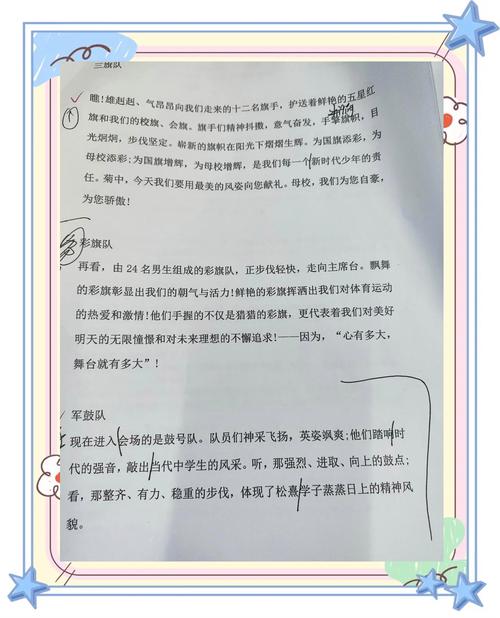 三旗队
瞧!雄赳赳、气昂昂向我们走来的十二名旗手，护送着鲜艳的五星红
旗和我们的校旗、会旗。旗手们精神抖擞，意气奋发，手擎旗帜，目
光炯炯，步伐坚定。崭新的旗帜在阳光下熠熠生辉。为国旗添彩，为
母校添彩;为国旗增辉，为母校增辉，是我们每一个新时代少年的责
任。菊中，今天我们要用最美的风姿向您献礼。母校，我们为您自豪，
为您骄傲!
彩旗队
再看，由 24 名男生组成的彩旗队，正步伐轻快，走向主席台。飘舞
的彩旗彰显出我们的朝气与活力!鲜艳的彩旗挥洒出我们对体育运动
的热爱和激情!他们手握的不仅是猎猎的彩旗，更代表着我们对美好
明天的无限憧憬和对未来理想的不懈追求!——因为，“心有多大，
舞台就有多大”!
军鼓队
现在进入会场的是鼓号队。队员们神采飞扬，英姿飒爽;他们踏响时
代的强音，敲出当代中学生的风采。听，那强烈、进取、向上的鼓点;
看，那整齐、有力、稳重的步伐，体现了松熹学子蒸蒸日上的精神风
貌。